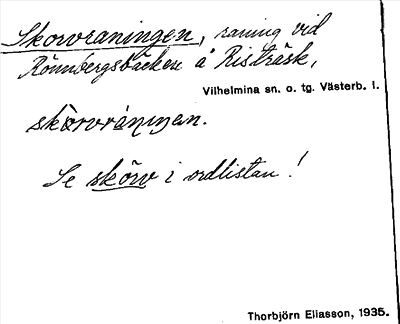 Skorvraningen, raning vid
Rönnbergsbäcken å Risträsk,
Vilhelmina sn. o. tg. Västerb. l.
skòrvrániŋen.
Se skörv i ordlistan!
Thorbjörn Eliasson, 1935.